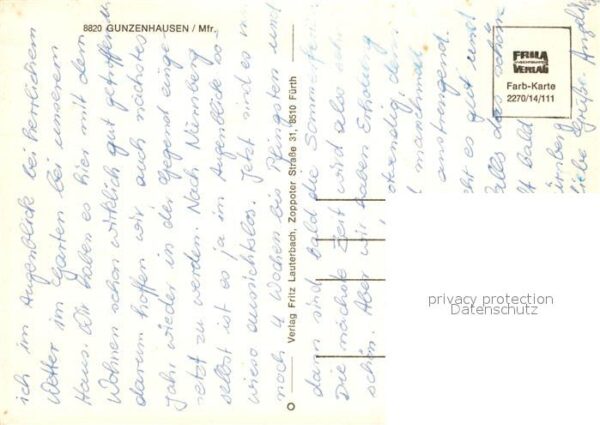 8820 GUNZENHAUSEN / Mfr.
ich im Augenblick bei herrlichem
Wetter im Garten bei unserem
Haus. Wir haben es hier mit dem
Wohnen schon wirklich gut getroffen u.
darum hoffen wir, auch nächstes
Jahr wieder in der Gegend einge-
setzt zu werden. Nach Nürnberg
selbst ist es ja im Augenblick so
wieso aussichtslos. Jetzt sind es
noch 4 Wochen bis Pfingsten und
dann sind bald die Sommerferien
Die nächste Zeit wird also sehr
schön. Aber wir haben Erholung
notwendig, denn
manchmal
anstrengend.
geht es gut und
alles das schöne
bald
Nürnberg
liebe Grüße
Verlag Fritz Lauterbach, Zoppoter Straße 31, 8510 Fürth
FRILA
VERLAG
Farb-Karte
2270/14/111
privacy protection
Datenschutz